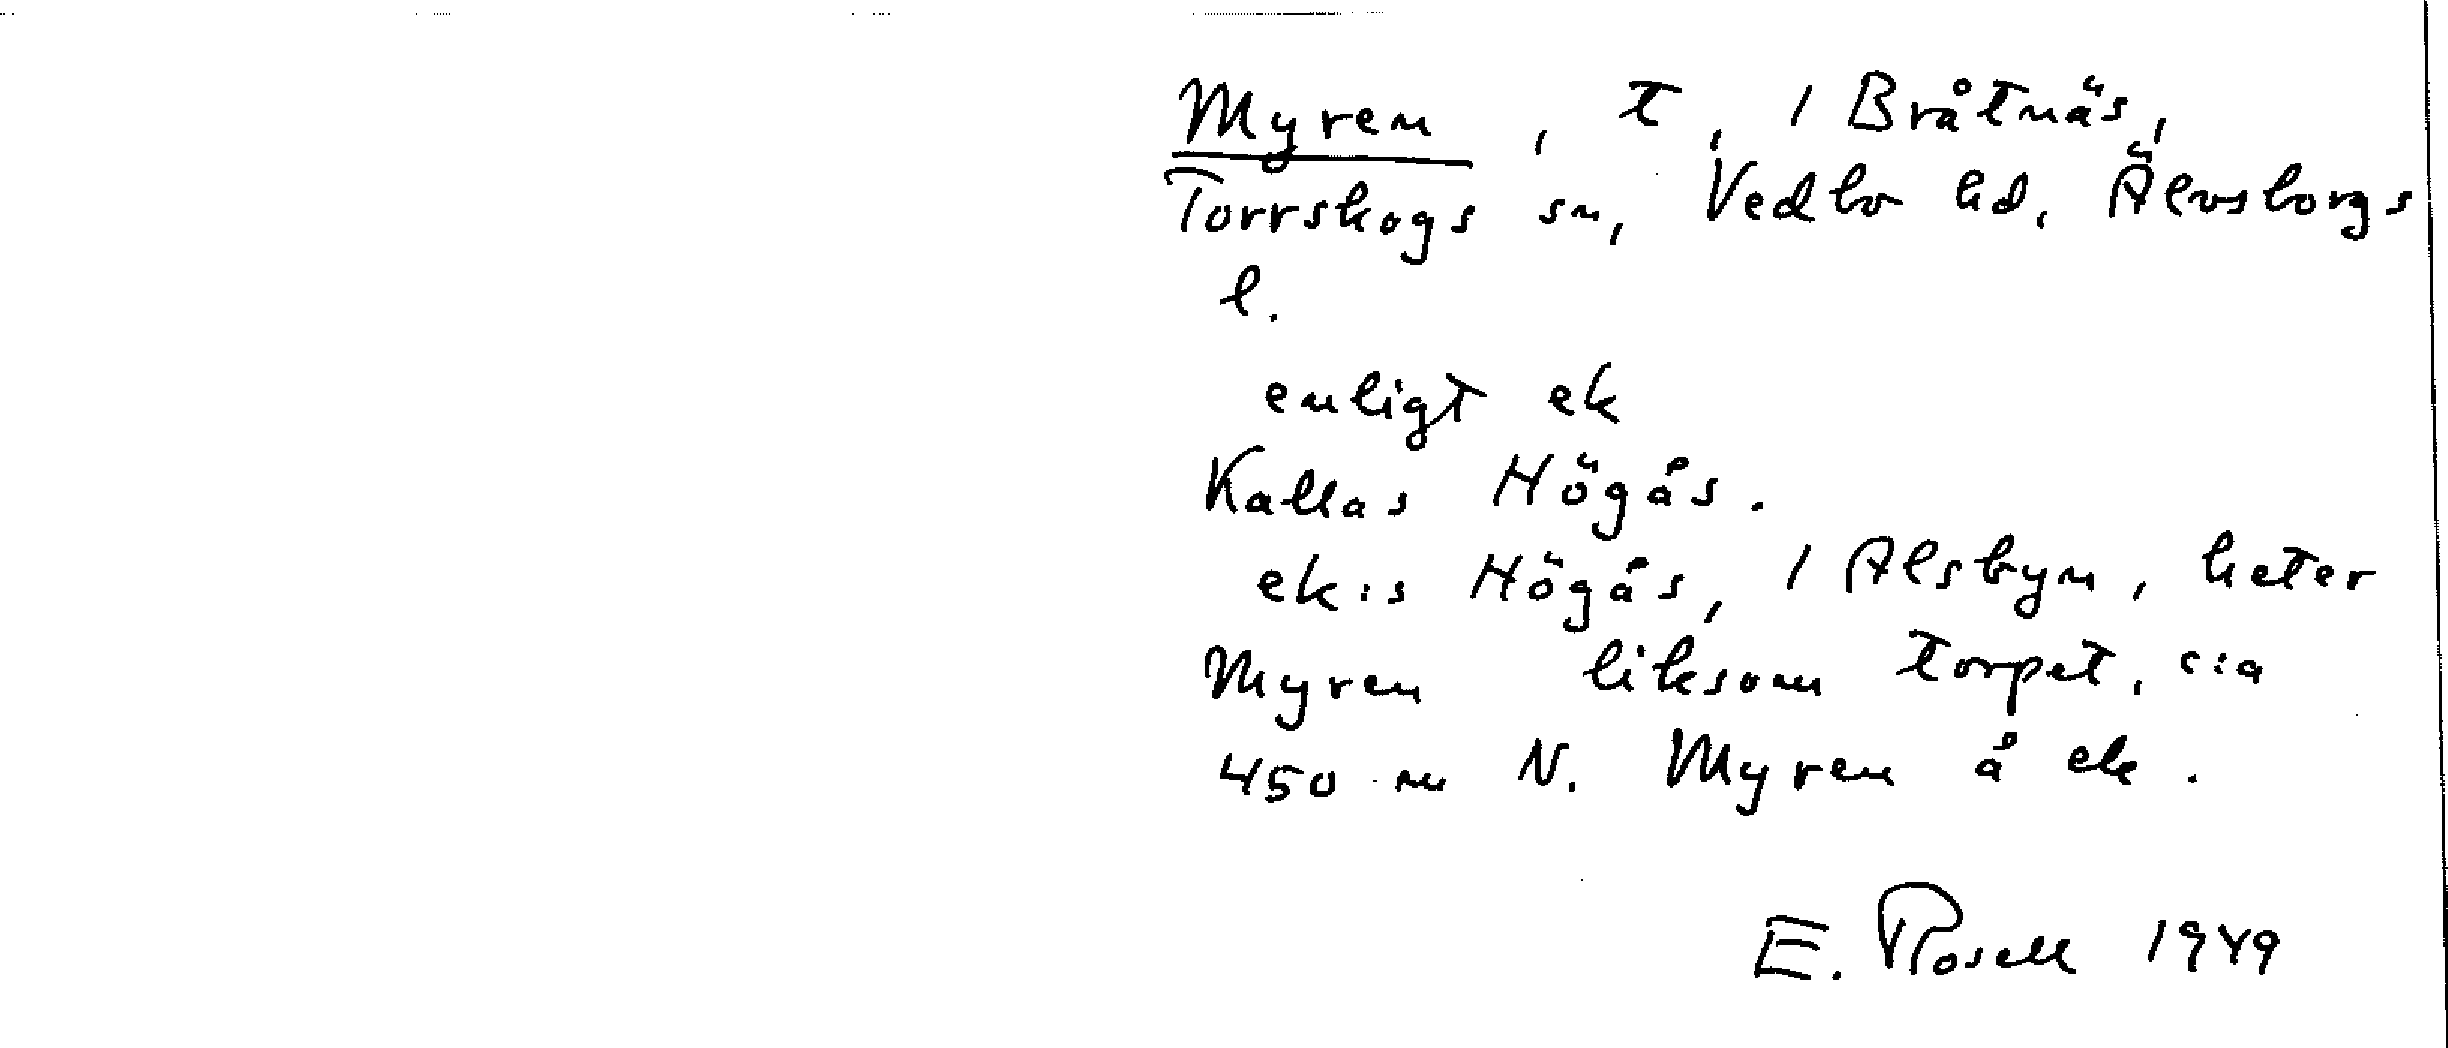 Myren, t, / Bråtnäs,
Torrskogs sn, Vedbo hd, Älvsborgs
l.
enligt ek
Kallas Högås.
ek:s Högås, / Alsbyn, heter
Myren liksom torpet, c:a
450 m N. Myren å ek.
E. Rosell 1949